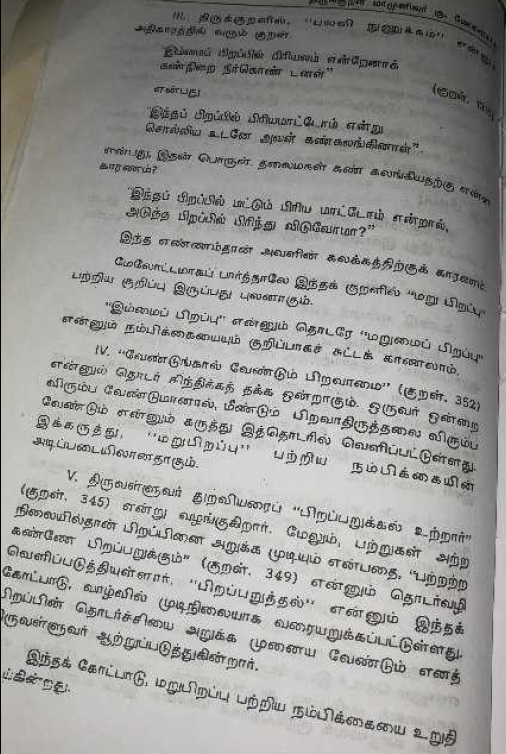 III. திருக்குறளில், "புலவி நுணுக்கம்" என்னும்
அதிகாரத்தில் வரும் குறள்.
"இம்மைப் பிறப்பில் பிரியலம் என்றேனாக்
கண்நிறை நீர்கொண் டனள்"
(குறள்.
என்பது
"இந்தப் பிறப்பில் பிரியமாட்டோம் என்று
சொல்லிய உடனே அவள் கண்கலங்கினாள்".
என்பது, இதன் பொருள். தலைமகள் கண் கலங்கியதற்கு என்ன
காரணம்?
"இந்தப் பிறப்பில் மட்டும் பிரிய மாட்டோம் என்றால்,
அடுத்த பிறப்பில் பிரிந்து விடுவோமா?"
இந்த எண்ணம்தான் அவளின் கலக்கத்திற்குக் காரணம்.
மேலோட்டமாகப் பார்த்தாலே இந்தக் குறளில் "மறு பிறப்பு"
பற்றிய குறிப்பு இருப்பது புலனாகும்.
"இம்மைப் பிறப்பு" என்னும் தொடரே "மறுமைப் பிறப்பு"
என்னும் நம்பிக்கையையும் குறிப்பாகச் சுட்டக் காணலாம்.
IV. "வேண்டுங்கால் வேண்டும் பிறவாமை" (குறள். 352)
என்னும் தொடர் சிந்திக்கத் தக்க ஒன்றாகும். ஒருவர் ஒன்றை
விரும்ப வேண்டுமானால், மீண்டும் பிறவாதிருத்தலை விரும்ப
வேண்டும் என்னும் கருத்து இத்தொடரில் வெளிப்பட்டுள்ளது.
இக்கருத்து, "மறுபிறப்பு" பற்றிய நம்பிக்கையின்
அடிப்படையிலானதாகும்.
V. திருவள்ளுவர் துறவியரைப் "பிறப்பறுக்கல் உற்றார்"
(குறள். 345) என்று வழங்குகிறார். மேலும், பற்றுகள் அற்ற
நிலையில்தான் பிறப்பினை அறுக்க முடியும் என்பதை, "பற்றற்ற
கண்ணே பிறப்பறுக்கும்" (குறள். 349) என்னும் தொடர்வழி
வெளிப்படுத்தியுள்ளார். "பிறப்பறுத்தல்" என்னும் இந்தக்
கோட்பாடு, வாழ்வில் முடிநிலையாக வரையறுக்கப்பட்டுள்ளது.
பிறப்பின் தொடர்ச்சியை அறுக்க முனைய வேண்டும் எனத்
திருவள்ளுவர் ஆற்றுப்படுத்துகின்றார்.
இந்தக் கோட்பாடு, மறுபிறப்பு பற்றிய நம்பிக்கையை உறுதி